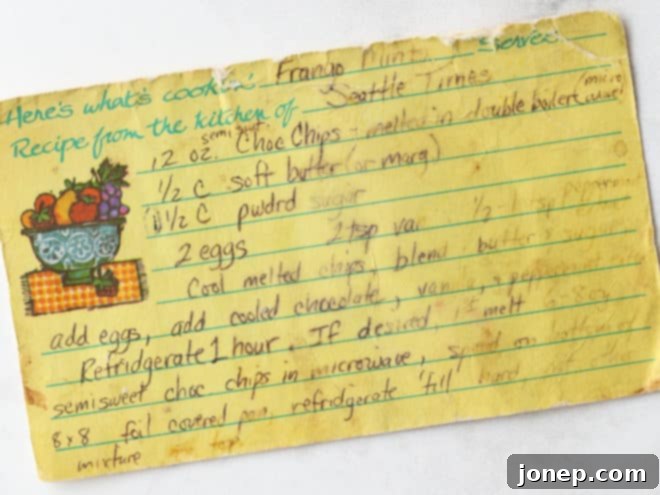 Here's what's cookin' Frango Mints Serves
Recipe from the kitchen of Seattle Times
12 oz. semi Choc Chips - melted in double boiler
1/2 C soft butter (or marg)
1 1/2 C pwdrd sugar
2 eggs 2 tsp va 1/2
Cool melted chips, blend butter & sugar
add eggs, add cooled chocolate, vanilla, & peppermint
Refridgerate 1 hour. If desired, melt
semisweet choc chips in microwave, spread on bottom of
8x8 foil covered pan, refridgerate 'till hard,
mixture on top
jonep.com